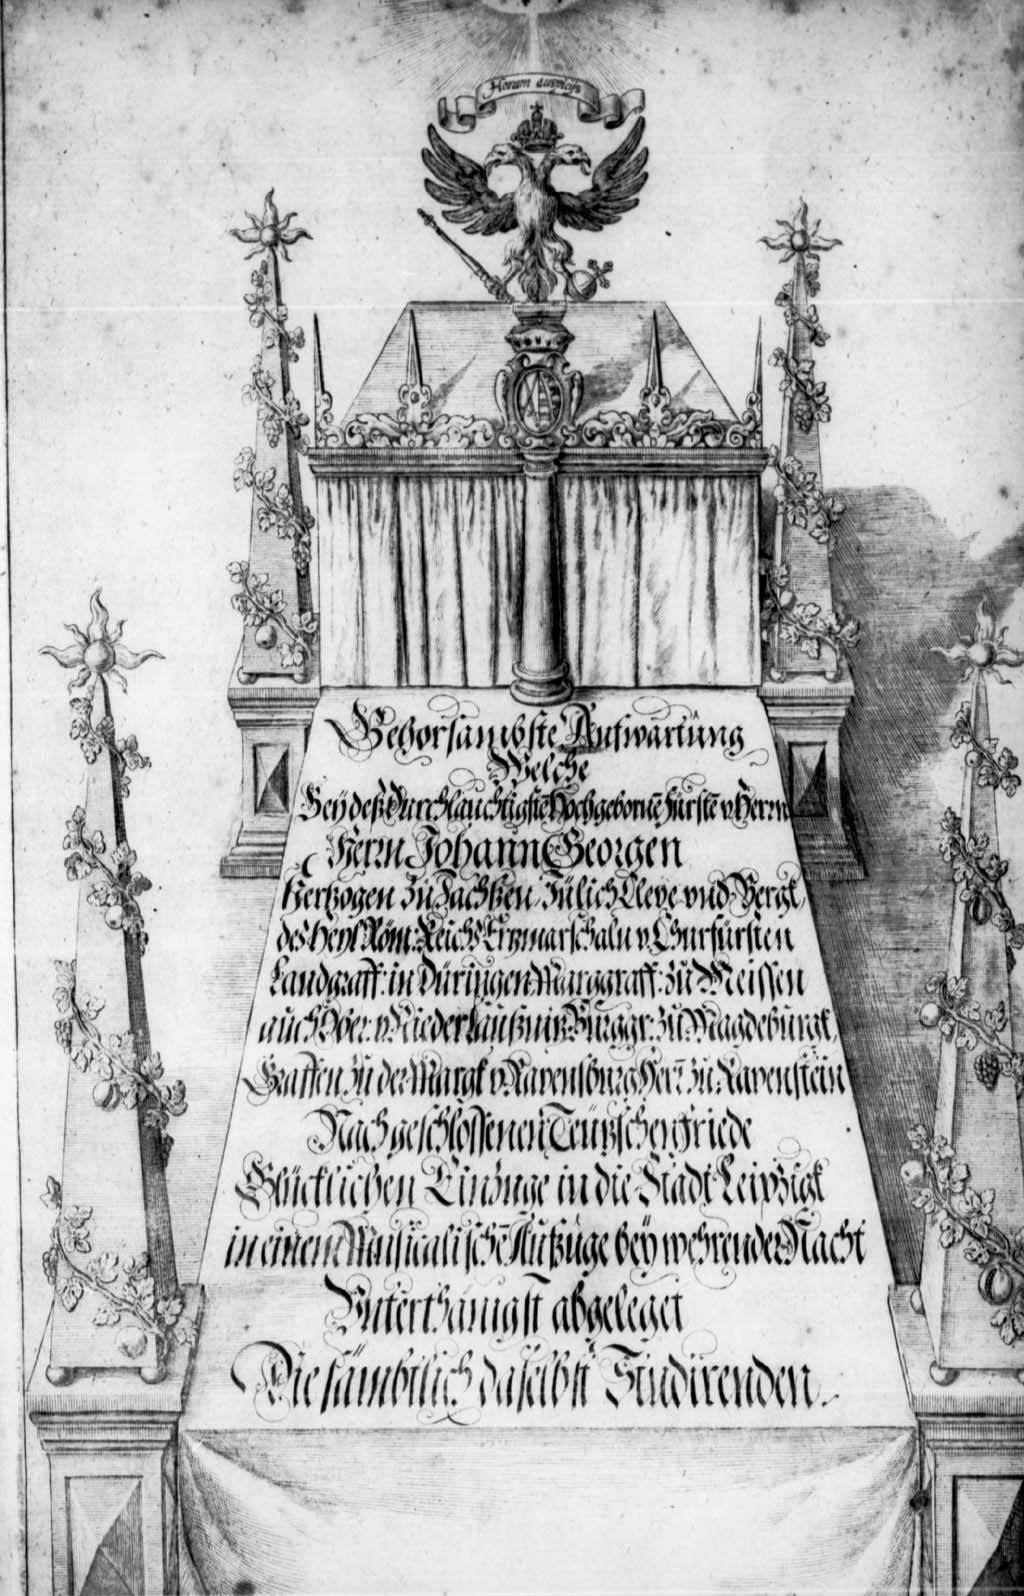 Horum auspicijs
Gehorsambste Aufwartüng
Welche
Beÿ deß Dürchlaüchtigstē Hochgebornē Fürstē v. Herrn
Herrn Johann Georgen
Hertzogen zü Sachßen, Jülich Cleve vnd Bergk,
des Heyl. Röm: Reichs Ertzmarschaln v. Chürfürsten
Landgraff: in Düringen Marggraff: zü Meissen
auch Ober: v. Nieder Laüßnitz Bürggr: zü Magdebürgk,
Graffen zü der Margk v. Ravensbürg Herr̄ zü Ravenstein
Nach geschlossenen Teützschen friede
Glücklichen Einzüge in die Stadt Leipzigk
in einem Müsicalischē Aüfzüge beÿ wehrender Nacht
Vnterthänigst abgeleget
Die sämbtlich daselbst Stüdirenden.